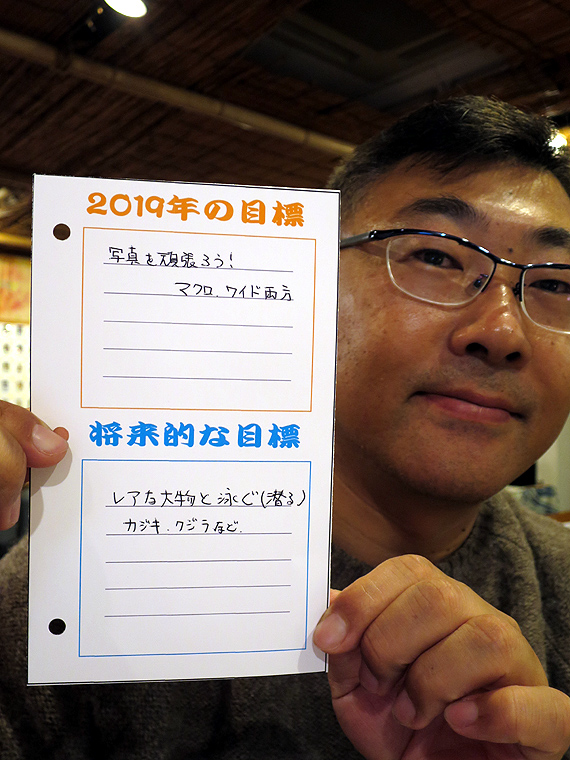 2019年の目標
写真を頑張ろう!
マクロ、ワイド両方
将来的な目標
レアな大物と泳ぐ(潜る)
カジキ、クジラなど、